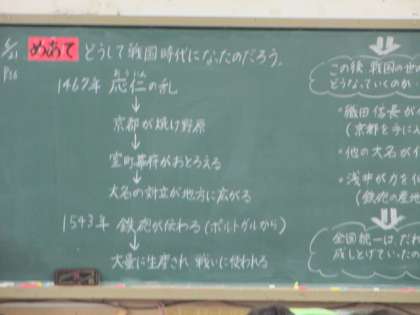 6/21
P56
めあて どうして戦国時代になったのだろう。
1467年 応仁の乱
おうにん
↓
京都が焼け野原
↓
室町幕府がおとろえる
↓
大名の対立が地方に広がる
1543年 鉄砲が伝わる(ポルトガルから)
↓
大量に生産され 戦いに使われる
この後 戦国の世の
どうなっていくのか
・織田信長が
(京都を手に
・他の大名が
・浅井が力を
(鉄砲の産地
全国統一は、だれ
成しとげていたの